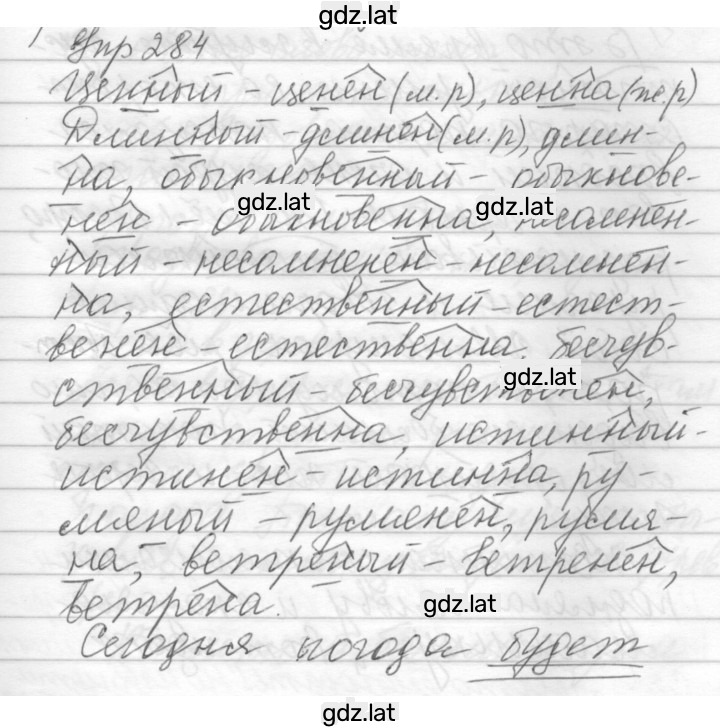 gdz.lat
Упр 284
Ценный - ценен (м.р), ценна (ж.р)
Длинный - длинен (м.р), длин-
на, обыкновенный - обыкнове-
gdz.lat
gdz.lat
нен - обыкновенна, несомнен-
ный - несомненен - несомнен-
на, естественный - естест-
венен - естественна. бесчув-
gdz.lat
ственный - бесчувственен,
бесчувственна, истинный -
истинен - истинна, ру-
мяный - румянен, румя-
на, ветреный - ветренен,
ветрена.
gdz.lat
Сегодня погода будет
gdz.lat